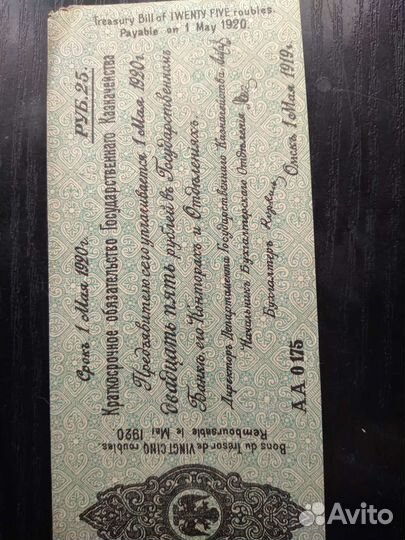 Treasury Bill of TWENTY FIVE roubles.
Payable on 1 May 1920.
Срокъ 1 Мая 1920 г.
РУБ. 25.
Краткосрочное обязательство Государственнаго Казначейства
Предъявителю сего уплачивается 1 Мая 1920 г.
двадцать пять рублей въ Государственномъ
Банкѣ, его Конторахъ и Отдѣленіяхъ.
Директоръ Департамента Государственнаго Казначейства
Начальникъ Бухгалтерскаго Отдѣленія
Бухгалтеръ
АА 0175
Омскъ, 1 Мая 1919 г.
Bons du Trésor de VINGT CINQ roubles.
Remboursable le Mai 1920.
Avito